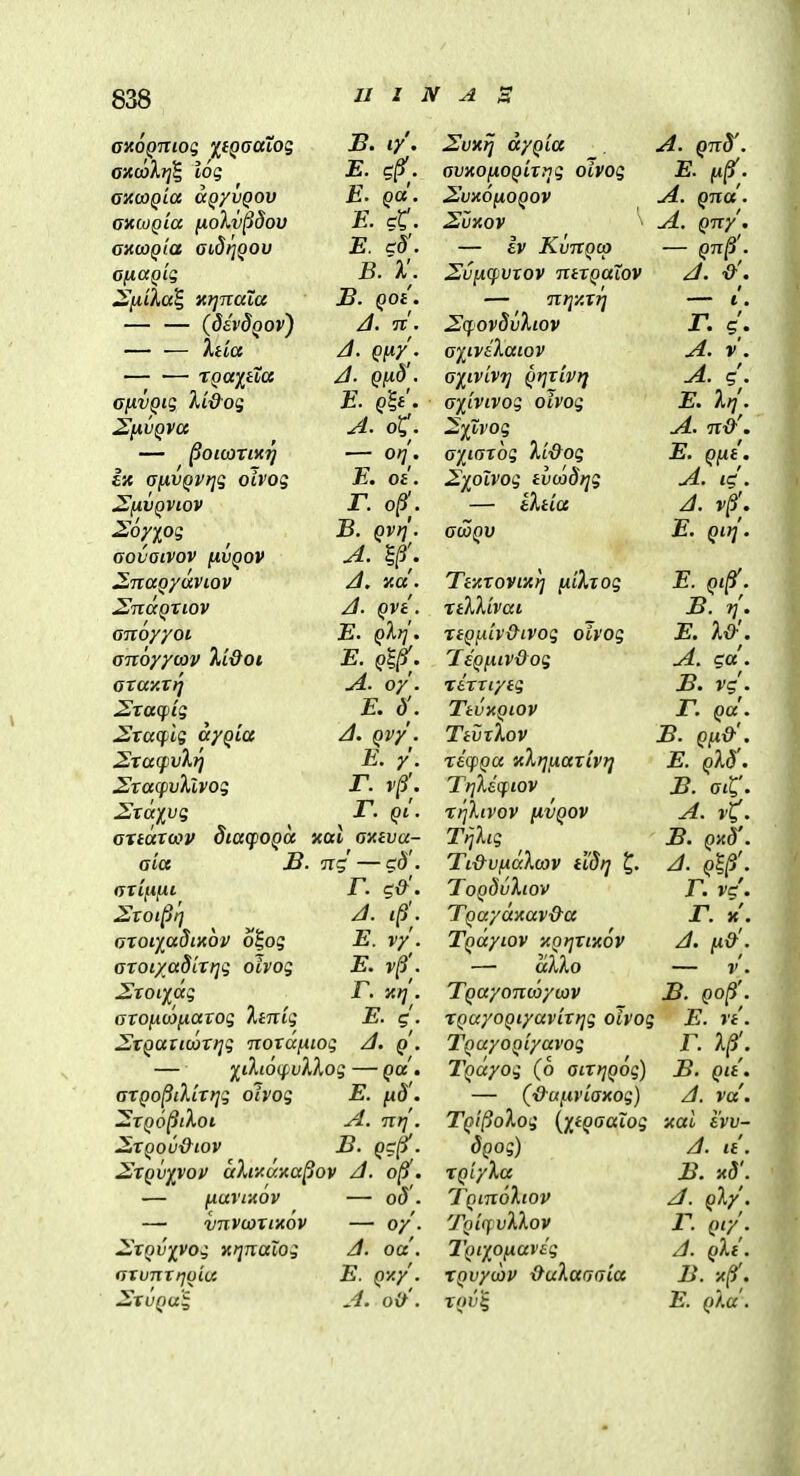 838
ΠΙΝΑΞ
σκόρπιος χερσαῖος Β. ιγ΄.
σκώληξ ἰός Ε. ϛβ΄.
σκωρία ἀργύρου Ε. ρα΄.
σκωρία μολύβδου Ε. ϛζ΄.
σκωρία σιδήρου Ε. ϛδ΄.
σμαρίς Β. λ΄.
Σμίλαξ κηπαία Β. ροε΄.
— — (δένδρον) Δ. π΄.
— — λεία Δ. ρμγ΄.
— — τραχεῖα Δ. ρμδ΄.
σμύρις λίθος Ε. ρξε΄.
Σμύρνα Α. οζ΄.
— βοιωτική — οη΄.
ἐκ σμύρνης οἶνος Ε. οε΄.
Σμύρνιον Γ. οβ΄.
Σόγχος Β. ρνη΄.
σούσινον μύρον Α. ξβ΄.
Σπαργάνιον Δ. κα΄.
Σπάρτιον Δ. ρνε΄.
σπόγγοι Ε. ρλη΄.
σπόγγων λίθοι Ε. ρξβ΄.
στακτή Α. ογ΄.
Σταφίς Ε. δ΄.
Σταφὶς ἀγρία Δ. ρνγ΄.
Σταφυλή Ε. γ΄.
Σταφυλῖνος Γ. νβ΄.
Στάχυς Γ. ρι΄.
στεάτων διαφορὰ καὶ σκευα-
σία Β. πϛ΄ — ϛδ΄.
στίμμι Γ. ϛθ΄.
Στοιβή Δ. ιβ΄.
στοιχαδικὸν ὄξος Ε. νγ΄.
στοιχαδίτης οἶνος Ε. νβ΄.
Στοιχάς Γ. κη΄.
στομώματος λεπίς Ε. ϛ΄.
Στρατιώτης ποτάμιος Δ. ρ΄.
— χιλιόφυλλος — ρα΄.
στροβιλίτης οἶνος Ε. μδ΄.
Στρόβιλοι Α. πη΄.
Στρούθιον Β. ρϛβ΄.
Στρύχνον ἁλικάκαβον Δ. οβ΄.
— μανικόν — οδ΄.
— ὑπνωτικόν — ογ΄.
Στρύχνος κηπαῖος Δ. οα΄.
στυπτηρία Ε. ρκγ΄.
Στύραξ Α. οθ΄.
Συκῆ ἀγρία Α. ρπδ΄.
συκομορίτης οἶνος Ε. μβ΄.
Συκόμορον Α. ρπα΄.
Σῦκον Α. ρπγ΄.
— ἐν Κύπρῳ — ρπβ΄.
Σύμφυτον πετραῖον Δ. θ΄.
— πηκτή — ι΄.
Σφονδύλιον Γ. ϛ΄.
σχινέλαιον Α. ν΄.
σχινίνη ῥητίνη Α. ϛ΄.
σχίνινος οἶνος Ε. λη΄.
Σχῖνος Α. πθ΄.
σχιστὸς λίθος Ε. ρμε΄.
Σχοῖνος εὐώδης Α. ιϛ΄.
— ἐλεία Δ. νβ΄.
σῶρυ Ε. ριη΄.
Τεκτονικὴ μίλτος Ε. ριβ΄.
τελλίναι Β. η΄.
τερμίνθινος οἶνος Ε. λθ΄.
Τέρμινθος Α. ϛα΄.
τέττιγες Β. νϛ΄.
Τεύκριον Γ. ρα΄.
Τεῦτλον Β. ρμθ΄.
τέφρα κληματίνη Ε. ρλδ΄.
Τηλέφιον Β. σιζ΄.
τήλινον μύρον Α. νζ΄.
Τῆλις Β. ρκδ΄.
Τιθυμάλων εἴδη ζ. Δ. ρξβ΄.
Τορδύλιον Γ. νϛ΄.
Τραγάκανθα Γ. κ΄.
Τράγιον κρητικόν Δ. μθ΄.
— ἄλλο — ν΄.
Τραγοπώγων Β. ροβ΄.
τραγοριγανίτης οἶνος Ε. νε΄.
Τραγορίγανος Γ. λβ΄.
Τράγος (ὁ σιτηρός) Β. ριε΄.
— (θαμνίσκος) Δ. να΄.
Τρίβολος (χερσαῖος καὶ ἔνυ-
δρος) Δ. ιε΄.
τρίγλα Β. κδ΄.
Τριπόλιον Δ. ρλγ΄.
Τρίφυλλον Γ. ριγ΄.
Τριχομανές Δ. ρλε΄.
τρυγὼν θαλασσία Β. κβ΄.
τρύξ Ε. ρλα΄.